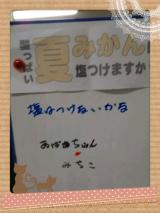 酸っぱい
夏みかんに
塩つけますか
塩はつけないかな
おばあちゃん
みちこ